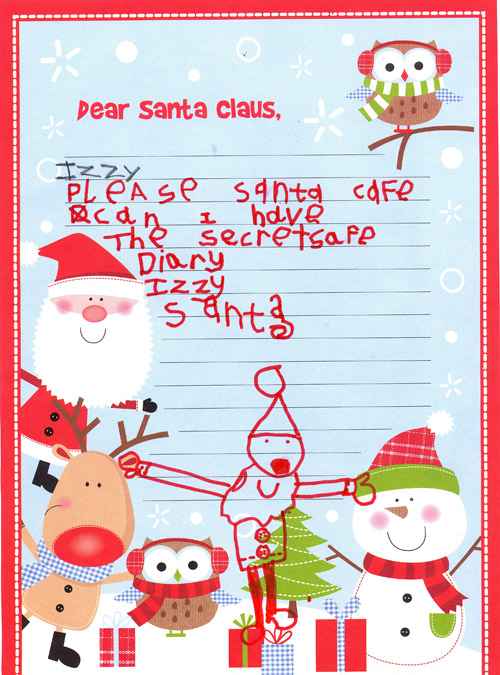 Dear Santa Claus,
Izzy
PLeASe santa cafe
can I have
The secretsafe
Diary
Izzy
santa